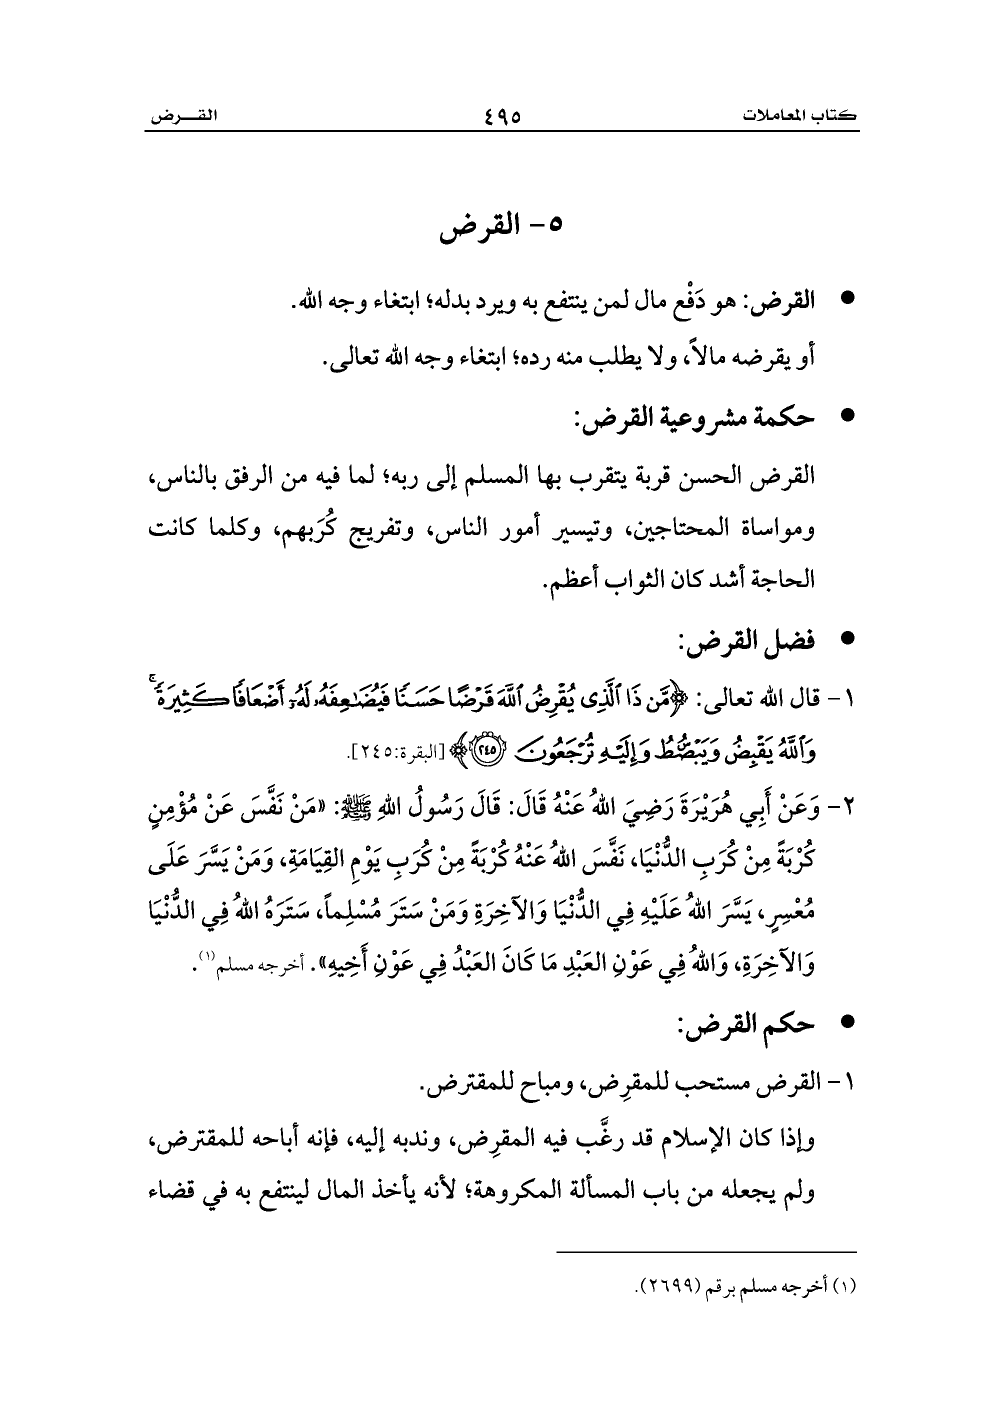 كتاب المعاملات ٤٩٥ القـــرض
٥- القرض
● القرض: هو دَفْع مال لمن ينتفع به ويرد بدله؛ ابتغاء وجه الله.
أو يقرضه مالاً، ولا يطلب منه رده؛ ابتغاء وجه الله تعالى.
● حكمة مشروعية القرض:
القرض الحسن قربة يتقرب بها المسلم إلى ربه؛ لما فيه من الرفق بالناس،
ومواساة المحتاجين، وتيسير أمور الناس، وتفريج كُرَبهم، وكلما كانت
الحاجة أشد كان الثواب أعظم.
● فضل القرض:
١- قال الله تعالى: ﴿مَّن ذَا ٱلَّذِى يُقْرِضُ ٱللَّهَ قَرْضًا حَسَنًا فَيُضَٰعِفَهُۥ لَهُۥٓ أَضْعَافًا كَثِيرَةً ۚ
وَٱللَّهُ يَقْبِضُ وَيَبْصُۜطُ وَإِلَيْهِ تُرْجَعُونَ ﴿٢٤٥﴾﴾ [البقرة:٢٤٥].
٢- وَعَنْ أَبِي هُرَيْرَةَ رَضِيَ اللهُ عَنْهُ قَالَ: قَالَ رَسُولُ اللهِ ﷺ: «مَنْ نَفَّسَ عَنْ مُؤْمِنٍ
كُرْبَةً مِنْ كُرَبِ الدُّنْيَا، نَفَّسَ اللهُ عَنْهُ كُرْبَةً مِنْ كُرَبِ يَوْمِ القِيَامَةِ، وَمَنْ يَسَّرَ عَلَى
مُعْسِرٍ، يَسَّرَ اللهُ عَلَيْهِ فِي الدُّنْيَا وَالآخِرَةِ وَمَنْ سَتَرَ مُسْلِماً، سَتَرَهُ اللهُ فِي الدُّنْيَا
وَالآخِرَةِ، وَاللهُ فِي عَوْنِ العَبْدِ مَا كَانَ العَبْدُ فِي عَوْنِ أَخِيهِ». أخرجه مسلم(١).
● حكم القرض:
١- القرض مستحب للمقرِض، ومباح للمقترض.
وإذا كان الإسلام قد رغَّب فيه المقرِض، وندبه إليه، فإنه أباحه للمقترض،
ولم يجعله من باب المسألة المكروهة؛ لأنه يأخذ المال لينتفع به في قضاء
(١) أخرجه مسلم برقم (٢٦٩٩).